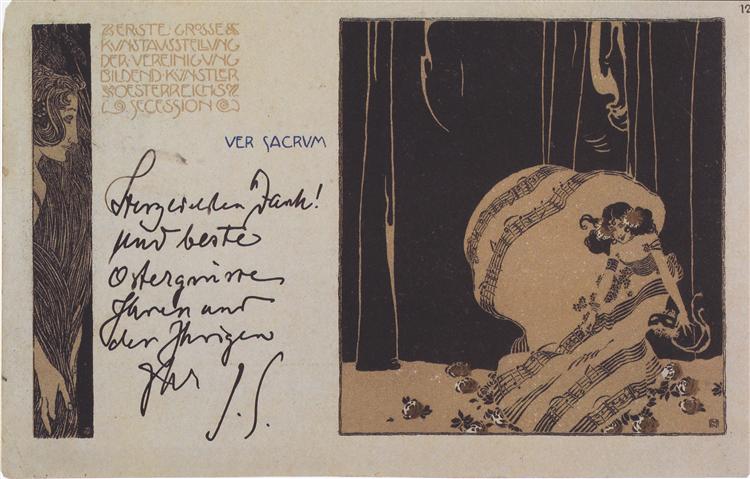 ERSTE GROSSE
KUNSTAUSSTELLUNG
DER VEREINIGUNG
BILDEND·KÜNSTLER
OESTERREICHS
SECESSION
VER SACRVM
Herzlichen Dank!
und beste
Ostergrüsse
Ihnen und
den Ihrigen
Ihr
J. S.
12